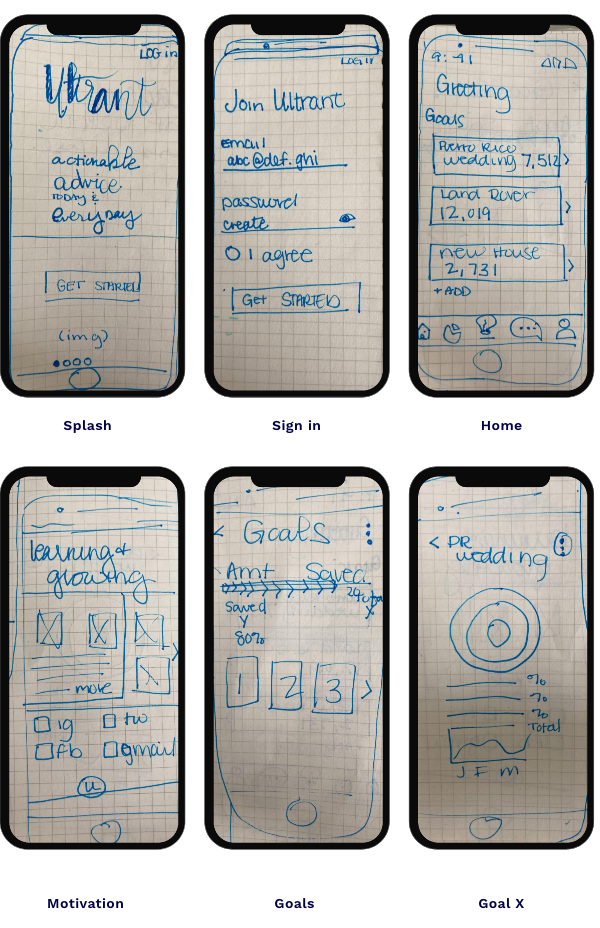 LOG in
Ultrant
actionable
advice
TODAY &
everyday
GET STARTED
(img)
Splash
LOG IN
Join Ultrant
email
abc@def.ghi
password
create
I agree
Get STARTED
Sign in
9:41
Greeting
Goals
Puerto Rico
wedding 7,512 >
Land Rover
12,019 >
new House
2,731 >
+ADD
Home
learning &
growing
more
ig
tw
fb
gmail
u
Motivation
< Goals
Amt Saved
Saved
Y
80%
X
1 2 3 >
Goals
< PR
wedding
%
%
%
Total
J F M
Goal X